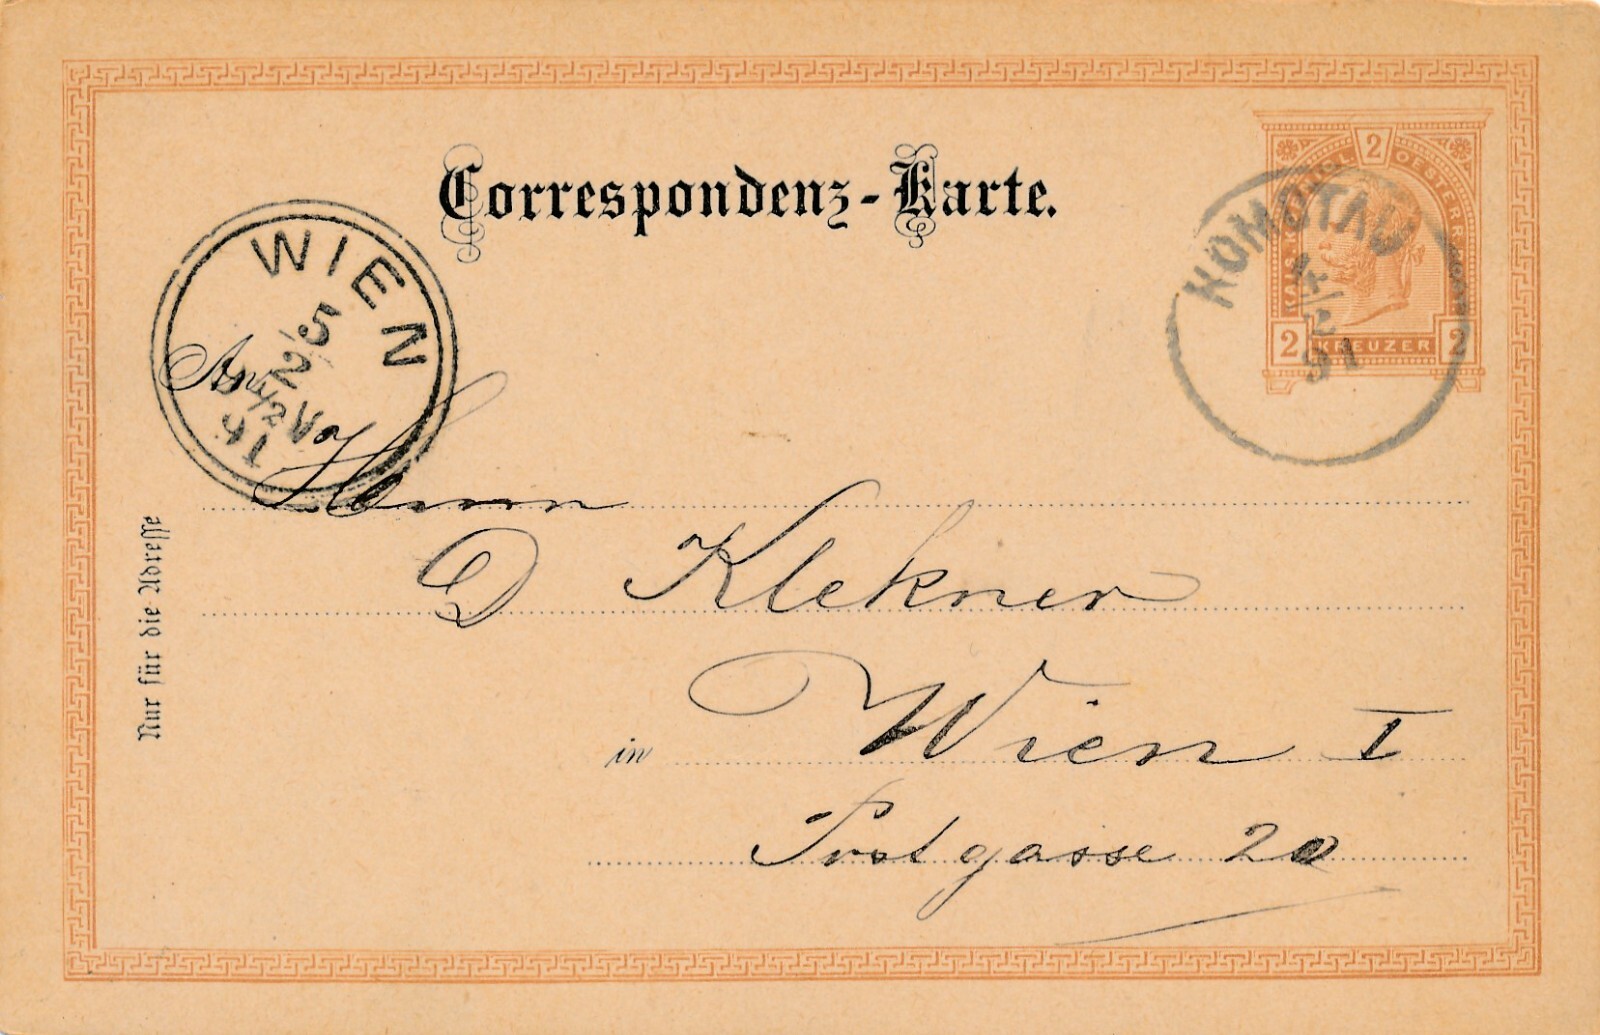 Correspondenz-Karte.
KAIS. KÖNIGL. OESTERR. POST
2
2 KREUZER 2
KOMOTAU
4/2
91
WIEN
5/2
An
Herrn
D Klekner
in Wien I
Postgasse 20
Nur für die Adresse